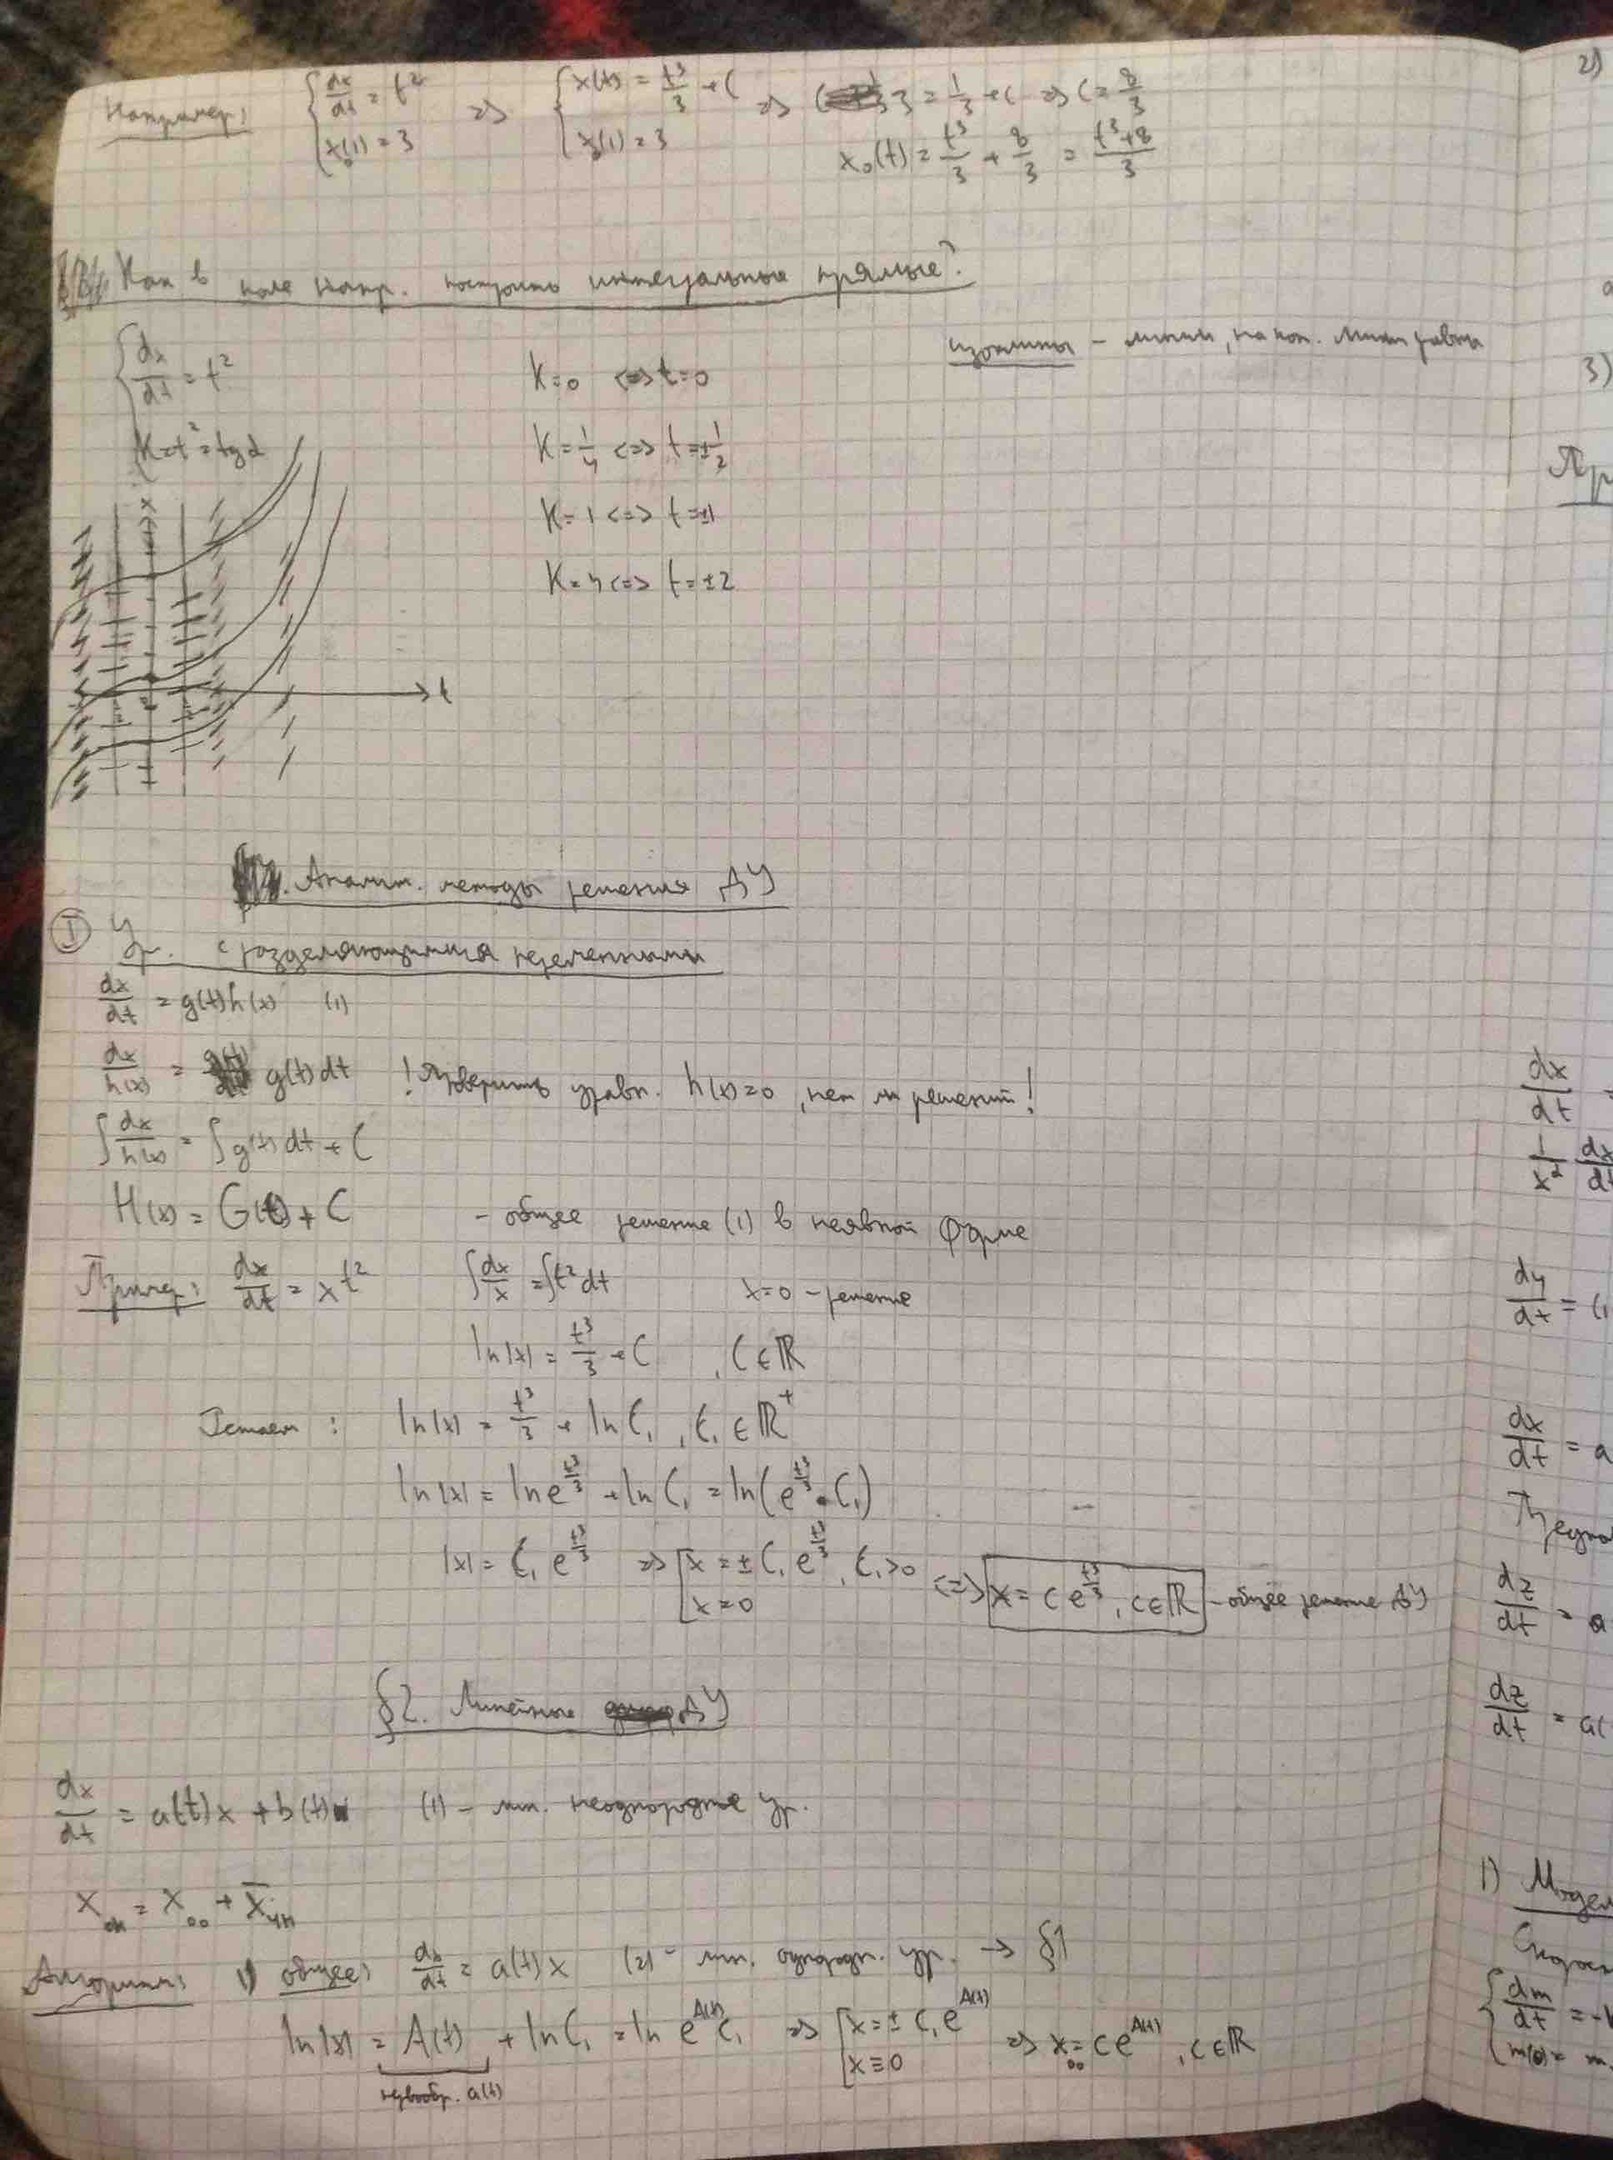 Например: { dx/dt = t² => { x(t) = t³/3 + C => 3 = 1/3 + C => C = 8/3
x₀(1) = 3 x₀(1) = 3 x₀(t) = t³/3 + 8/3 = (t³+8)/3
Как в поле напр. построить интегральные прямые?
{ dx/dt = t² K=0 <=> t=0 изоклины – линии, на кот.
K=t²=tg α K=1/4 <=> t=±1/2
K=1 <=> t=±1
K=4 <=> t=±2
x
t
Аналит. методы решения ДУ
I Ур. с разделяющимися переменными
dx/dt = g(t)h(x) (1)
dx/h(x) = g(t)dt ! Проверить уравн. h(x)=0, нет ли решений!
∫dx/h(x) = ∫g(t)dt + C
H(x) = G(t) + C – общее решение (1) в неявной форме
Пример: dx/dt = xt² ∫dx/x = ∫t²dt x=0 – решение
ln|x| = t³/3 + C , C∈ℝ
ln|x| = t³/3 + ln C₁ , C₁∈ℝ⁺
ln|x| = ln e^(t³/3) + ln C₁ = ln(e^(t³/3) · C₁)
|x| = C₁ e^(t³/3) => [ x = ± C₁ e^(t³/3), C₁>0 <=> x = c e^(t³/3), c∈ℝ – общее решение ДУ
x = 0
§2. Линейные ДУ
dx/dt = a(t)x + b(t) (1) – лин. неоднородное ур.
x_он = x_оо + x̄_чн
Алгоритм: 1) общее: dx/dt = a(t)x (2) – лин. однородн. ур. → §1
ln|x| = A(t) + ln C₁ = ln e^A(t) C₁ => [ x = ± C₁ e^A(t) => x_оо = c e^A(t) , c∈ℝ
x ≡ 0
первообр. a(t)
2)
3)
dx/dt =
1/x² dx/dt
dy/dt = (1
dx/dt = a
dz/dt = a
dz/dt = a(
1) Модел
Скорос
{ dm/dt = -k
m(0) = m